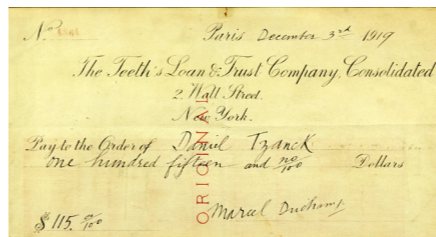 No
Paris December 3rd 1919
The Teeth's Loan & Trust Company, Consolidated
2 Wall Street.
New York.
Pay to the Order of Daniel Tzanck
one hundred fifteen and no/100 Dollars
Marcel Duchamp
$ 115. 00/100
ORIGINAL